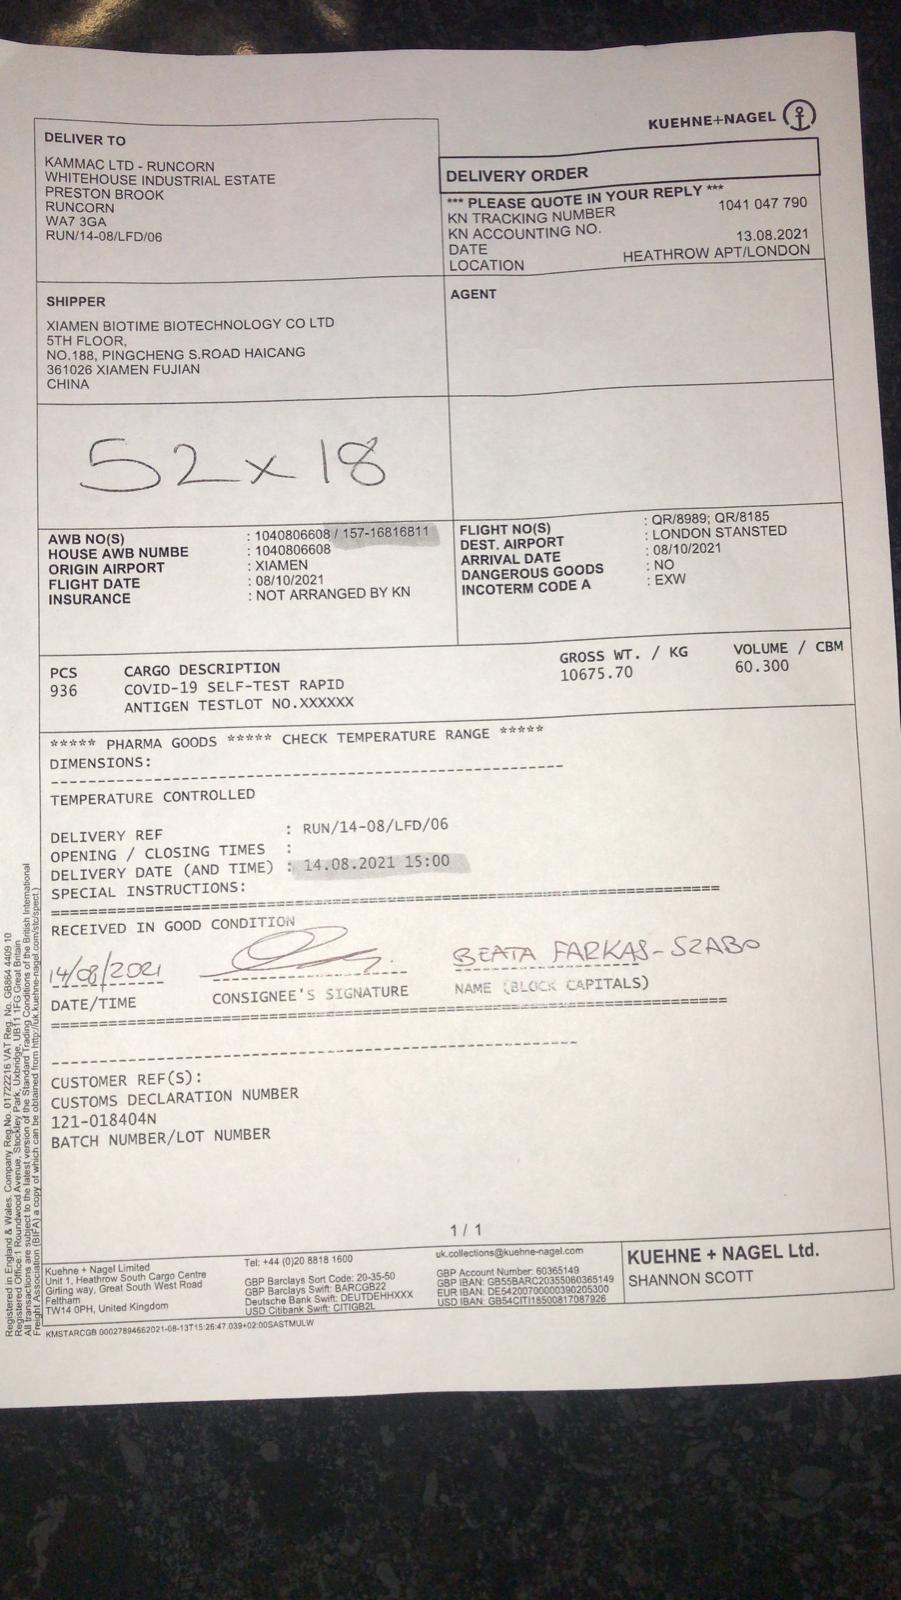 KUEHNE+NAGEL
DELIVER TO
KAMMAC LTD - RUNCORN
WHITEHOUSE INDUSTRIAL ESTATE
PRESTON BROOK
RUNCORN
WA7 3GA
RUN/14-08/LFD/06
DELIVERY ORDER
*** PLEASE QUOTE IN YOUR REPLY ***
KN TRACKING NUMBER 1041 047 790
KN ACCOUNTING NO.
DATE 13.08.2021
LOCATION HEATHROW APT/LONDON
SHIPPER
XIAMEN BIOTIME BIOTECHNOLOGY CO LTD
5TH FLOOR,
NO.188, PINGCHENG S.ROAD HAICANG
361026 XIAMEN FUJIAN
CHINA
AGENT
52 x 18
AWB NO(S) : 1040806608 / 157-16816811
HOUSE AWB NUMBE : 1040806608
ORIGIN AIRPORT : XIAMEN
FLIGHT DATE : 08/10/2021
INSURANCE : NOT ARRANGED BY KN
FLIGHT NO(S) : QR/8989; QR/8185
DEST. AIRPORT : LONDON STANSTED
ARRIVAL DATE : 08/10/2021
DANGEROUS GOODS : NO
INCOTERM CODE A : EXW
PCS CARGO DESCRIPTION GROSS WT. / KG VOLUME / CBM
936 COVID-19 SELF-TEST RAPID 10675.70 60.300
ANTIGEN TESTLOT NO.XXXXXX
***** PHARMA GOODS ***** CHECK TEMPERATURE RANGE *****
DIMENSIONS:
TEMPERATURE CONTROLLED
DELIVERY REF : RUN/14-08/LFD/06
OPENING / CLOSING TIMES :
DELIVERY DATE (AND TIME) : 14.08.2021 15:00
SPECIAL INSTRUCTIONS:
RECEIVED IN GOOD CONDITION
14/08/2021 BEATA FARKAS-SZABO
DATE/TIME CONSIGNEE'S SIGNATURE NAME (BLOCK CAPITALS)
CUSTOMER REF(S):
CUSTOMS DECLARATION NUMBER
121-018404N
BATCH NUMBER/LOT NUMBER
1 / 1
Kuehne + Nagel Limited
Unit 1, Heathrow South Cargo Centre
Girling way, Great South West Road
Feltham
TW14 0PH, United Kingdom
Tel: +44 (0)20 8818 1600
GBP Barclays Sort Code: 20-35-50
GBP Barclays Swift: BARCGB22
Deutsche Bank Swift: DEUTDEHHXXX
USD Citibank Swift: CITIGB2L
uk.collections@kuehne-nagel.com
GBP Account Number: 60365149
GBP IBAN: GB55BARC20355060365149
EUR IBAN: DE54200700000390205300
USD IBAN: GB54CITI18500817087926
KUEHNE + NAGEL Ltd.
SHANNON SCOTT
KMSTARCGB 00027894662021-08-13T15:26:47.039+02:00SASTMULW
Registered in England & Wales. Company Reg.No. 01722216 VAT Reg. No. GB864 4409 10
Registered Office:1 Roundwood Avenue, Stockley Park, Uxbridge, UB11 1FG Great Britain
All transactions are subject to the latest version of the Standard Trading Conditions of the British International
Freight Association (BIFA) a copy of which can be obtained from http://uk.kuehne-nagel.com/stc/spect.)